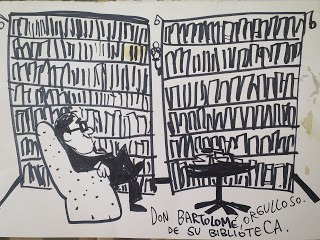 DON BARTOLOMÉ, ORGULLOSO.
DE SU BIBLIOTECA.